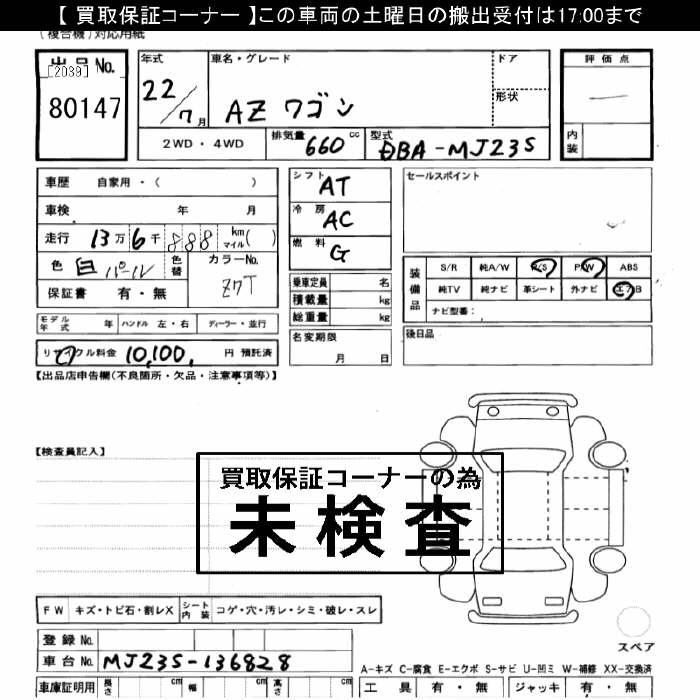 【 買取保証コーナー 】この車両の土曜日の搬出受付は17:00まで
(複合機)対応用紙
出品No.
[2039]
80147
年式
22/7月
車名・グレード
AZ ワゴン
ドア
形状
評価点
―
内装
2WD・4WD
排気量 660 cc
型式 DBA-MJ23S
車歴 自家用・( )
車検 年 月
走行 13万6千888 km マイル( )
色 白パール
色替
カラーNo.
Z7T
保証書 有・無
シフト AT
冷房 AC
燃料 G
乗車定員 名
積載量 kg
総重量 kg
セールスポイント
装備品
S/R 純A/W P/S P/W ABS
純TV 純ナビ 革シート 外ナビ エアB
ナビ型番:
モデル年式 年 ハンドル 左・右 ディーラー・並行
名変期限
月 日
後日品
リサイクル料金 10,100, 円 預託済
【出品店申告欄(不良箇所・欠品・注意事項等)】
【検査員記入】
買取保証コーナーの為
未検査
FW キズ・トビ石・割レX シート内装 コゲ・穴・汚レ・シミ・破レ・スレ
スペア
登録No.
車台No. MJ23S-136828
A-キズ C-腐食 E-エクボ S-サビ U-凹ミ W-補修 XX-交換済
車庫証明用 長さ cm 幅 cm 高さ cm
工具 有・無 ジャッキ 有・無